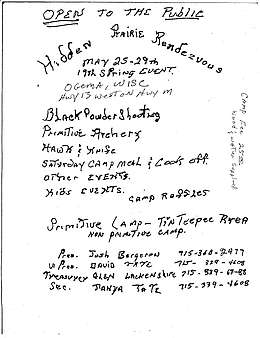 OPEN TO THE Public
Hidden PRIRIE Rendezvous
MAY 25-29th
19th SPRING EVENT.
OGEMA, WISC
HWY 13 WEST ON HWY M
Black Powder Shooting
Primitive Archery
HAWK & KNIFE
SATURDAY CAMP MEAL & COOK OFF.
OTHER EVENTS.
KIDS EVENTS.
CAMP RAFFLES
CAMP FEE 25.00
wood & water supplied
Primitive CAMP - TIN TeePee AREA
NON PRIMITIVE CAMP.
Pres. Josh Bergeron
V Pres. DAVID TATE 715-339-4608
Treasurer GLEN
Sec. TANYA TATE 715-339-4608